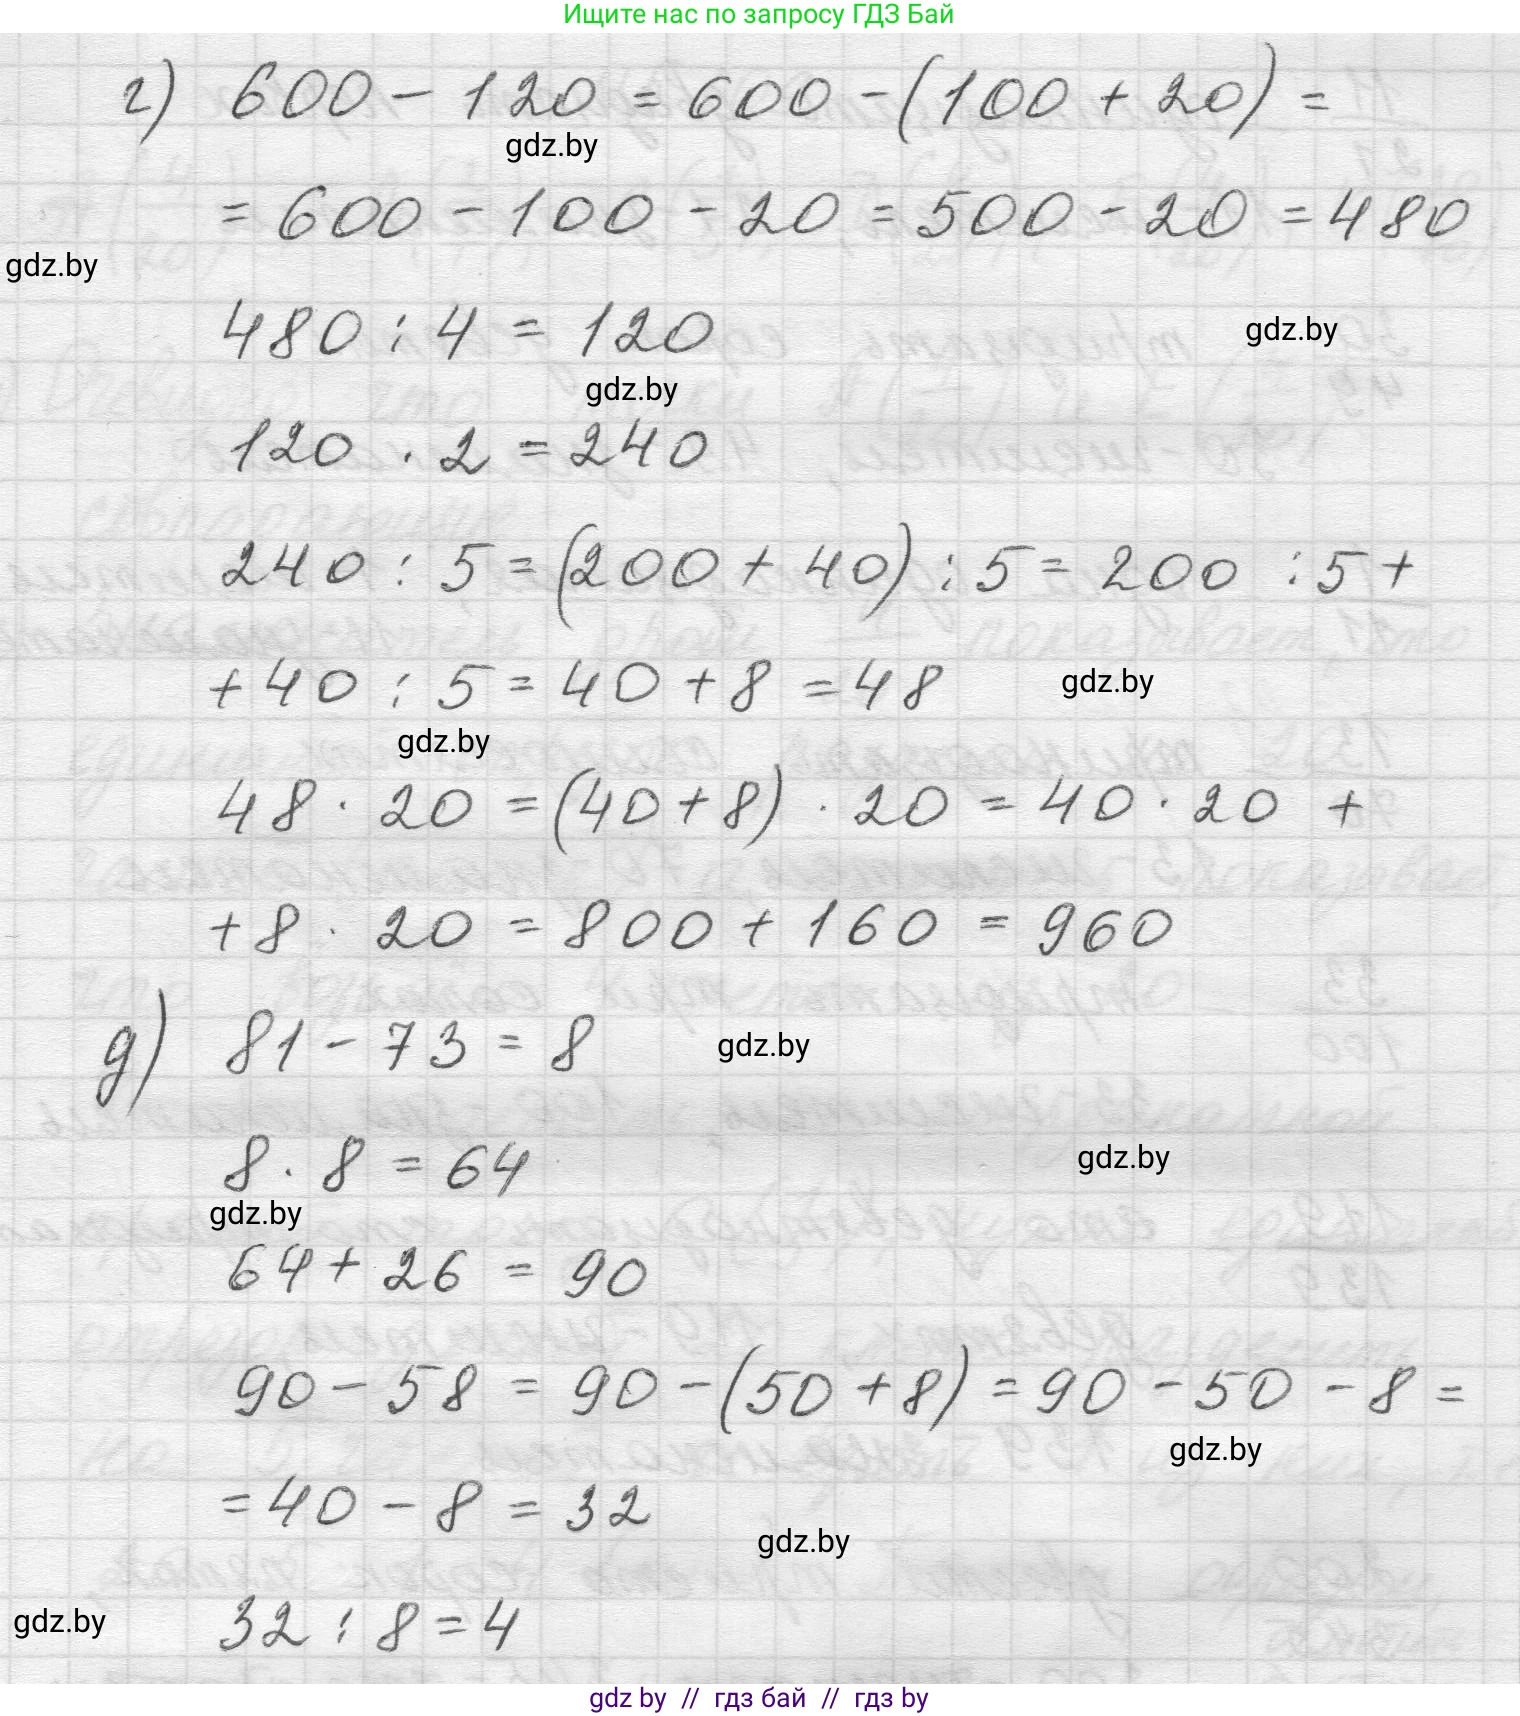 Ищите нас по запросу ГДЗ Бай
г) 600 - 120 = 600 - (100 + 20) =
gdz.by
= 600 - 100 - 20 = 500 - 20 = 480
gdz.by
480 : 4 = 120
gdz.by
gdz.by
120 · 2 = 240
240 : 5 = (200 + 40) : 5 = 200 : 5 +
+ 40 : 5 = 40 + 8 = 48
gdz.by
gdz.by
48 · 20 = (40 + 8) · 20 = 40 · 20 +
+ 8 · 20 = 800 + 160 = 960
д) 81 - 73 = 8
gdz.by
8 · 8 = 64
gdz.by
gdz.by
64 + 26 = 90
90 - 58 = 90 - (50 + 8) = 90 - 50 - 8 =
gdz.by
= 40 - 8 = 32
gdz.by
32 : 8 = 4
gdz.by
gdz by // гдз бай // гдз by